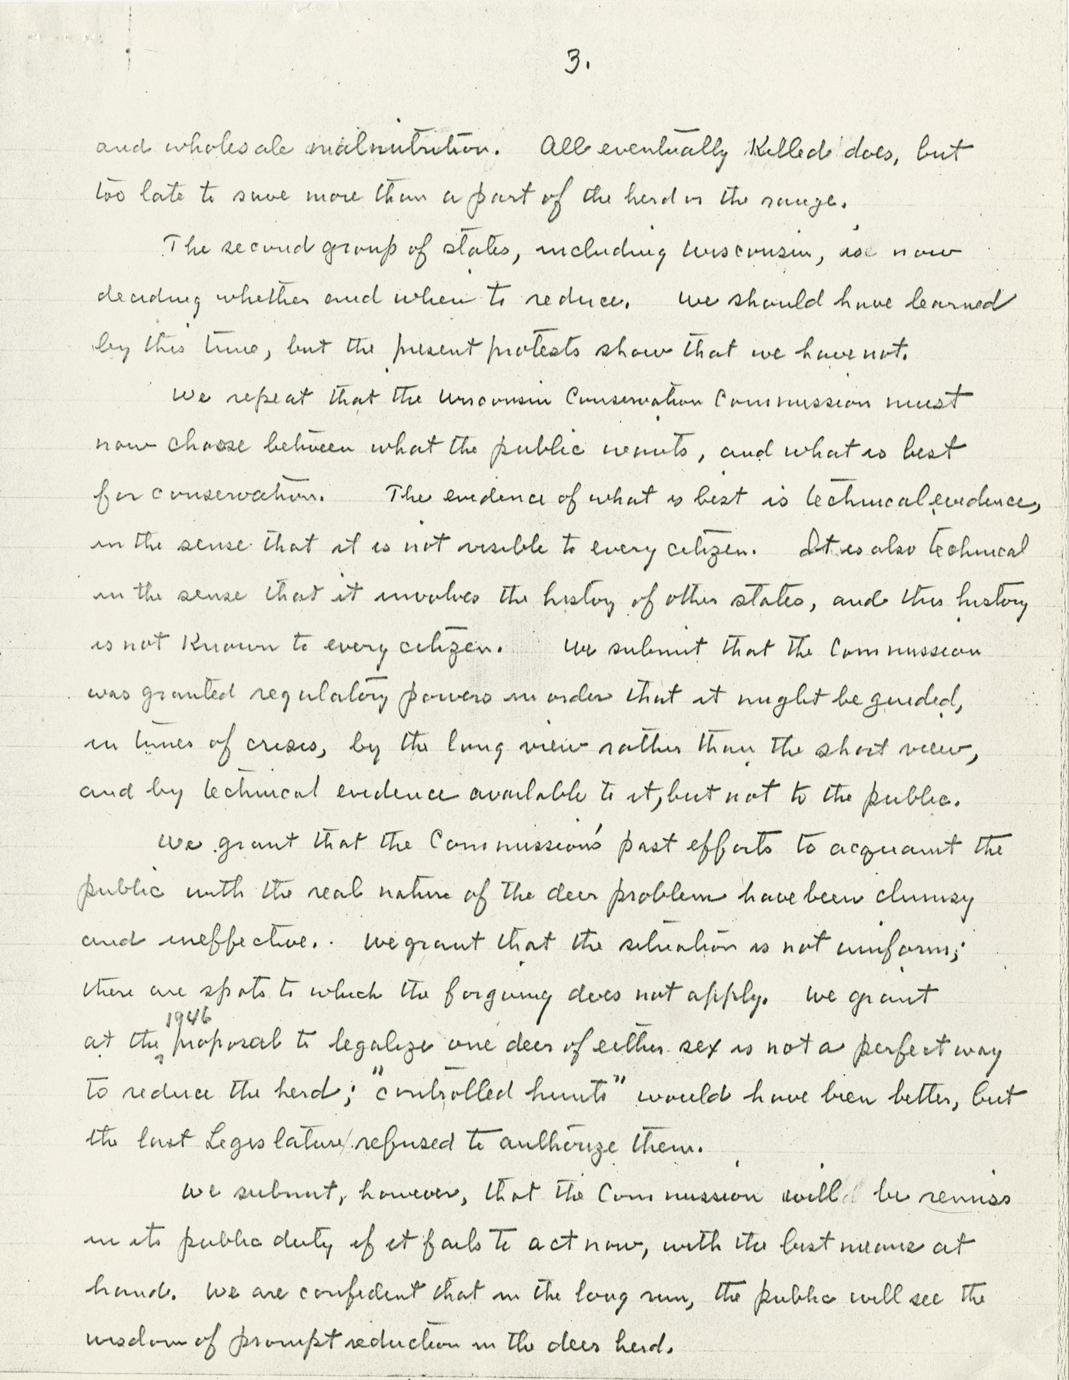 3.
and wholesale malnutrition. All eventually killed does, but
too late to save more than a part of the herd or the range.
The second group of states, including Wisconsin, is now
deciding whether and when to reduce. We should have learned
by this time, but the present protests show that we have not.
We repeat that the Wisconsin Conservation Commission must
now choose between what the public wants, and what is best
for conservation. The evidence of what is best is technical evidence,
in the sense that it is not visible to every citizen. It is also technical
in the sense that it involves the history of other states, and this history
is not known to every citizen. We submit that the Commission
was granted regulatory powers in order that it might be guided,
in times of crisis, by the long view rather than the short view,
and by technical evidence available to it, but not to the public.
We grant that the Commission's past efforts to acquaint the
public with the real nature of the deer problem have been clumsy
and ineffective. We grant that the situation is not uniform;
there are spots to which the forgoing does not apply. We grant
1946
at the proposal to legalize one deer of either sex is not a perfect way
to reduce the herd; "controlled hunts" would have been better, but
the last Legislature refused to authorize them.
We submit, however, that the Commission will be remiss
in its public duty if it fails to act now, with the best means at
hand. We are confident that in the long run, the public will see the
wisdom of prompt reduction in the deer herd.